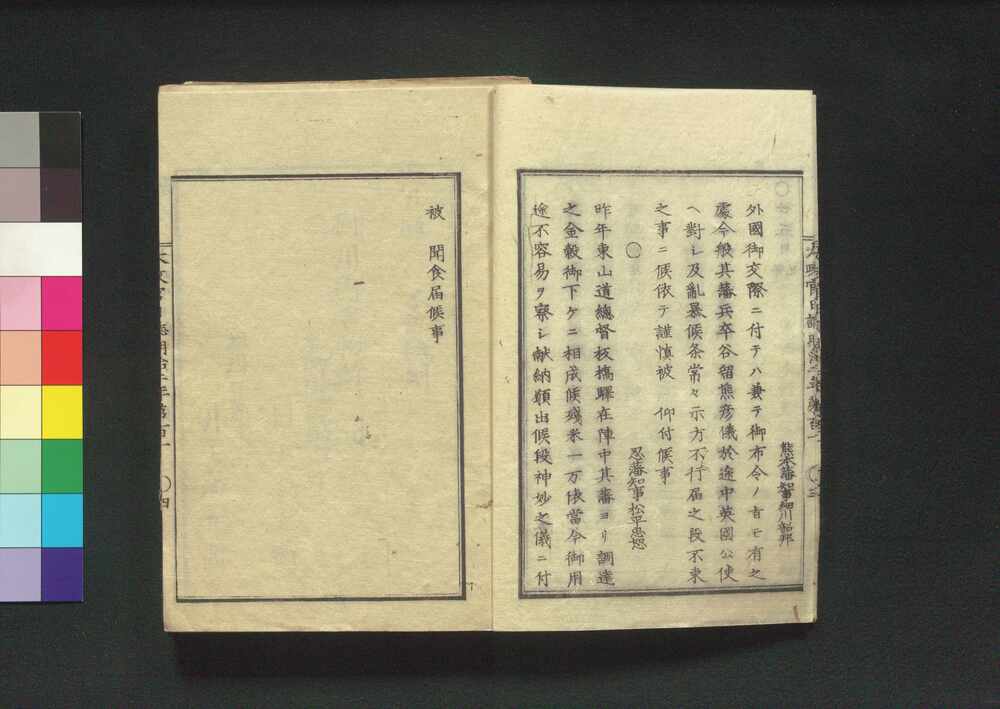 熊本藩知事細川韶邦
外國御交際ニ付テハ兼テ御布令ノ旨モ有之
處今般其藩兵卒谷留熊彦儀於途中英國公使
ヘ對シ及亂暴候条常々示方不行届之段不束
之事ニ候依テ謹慎被　仰付候事
○
忍藩知事松平忠恕
昨年東山道總督板橋驛在陣中其藩ヨリ調達
之金穀御下ケニ相成候殘米一万俵當今御用
途不容易ヲ察シ献納願出候段神妙之儀ニ付
被　聞食届候事